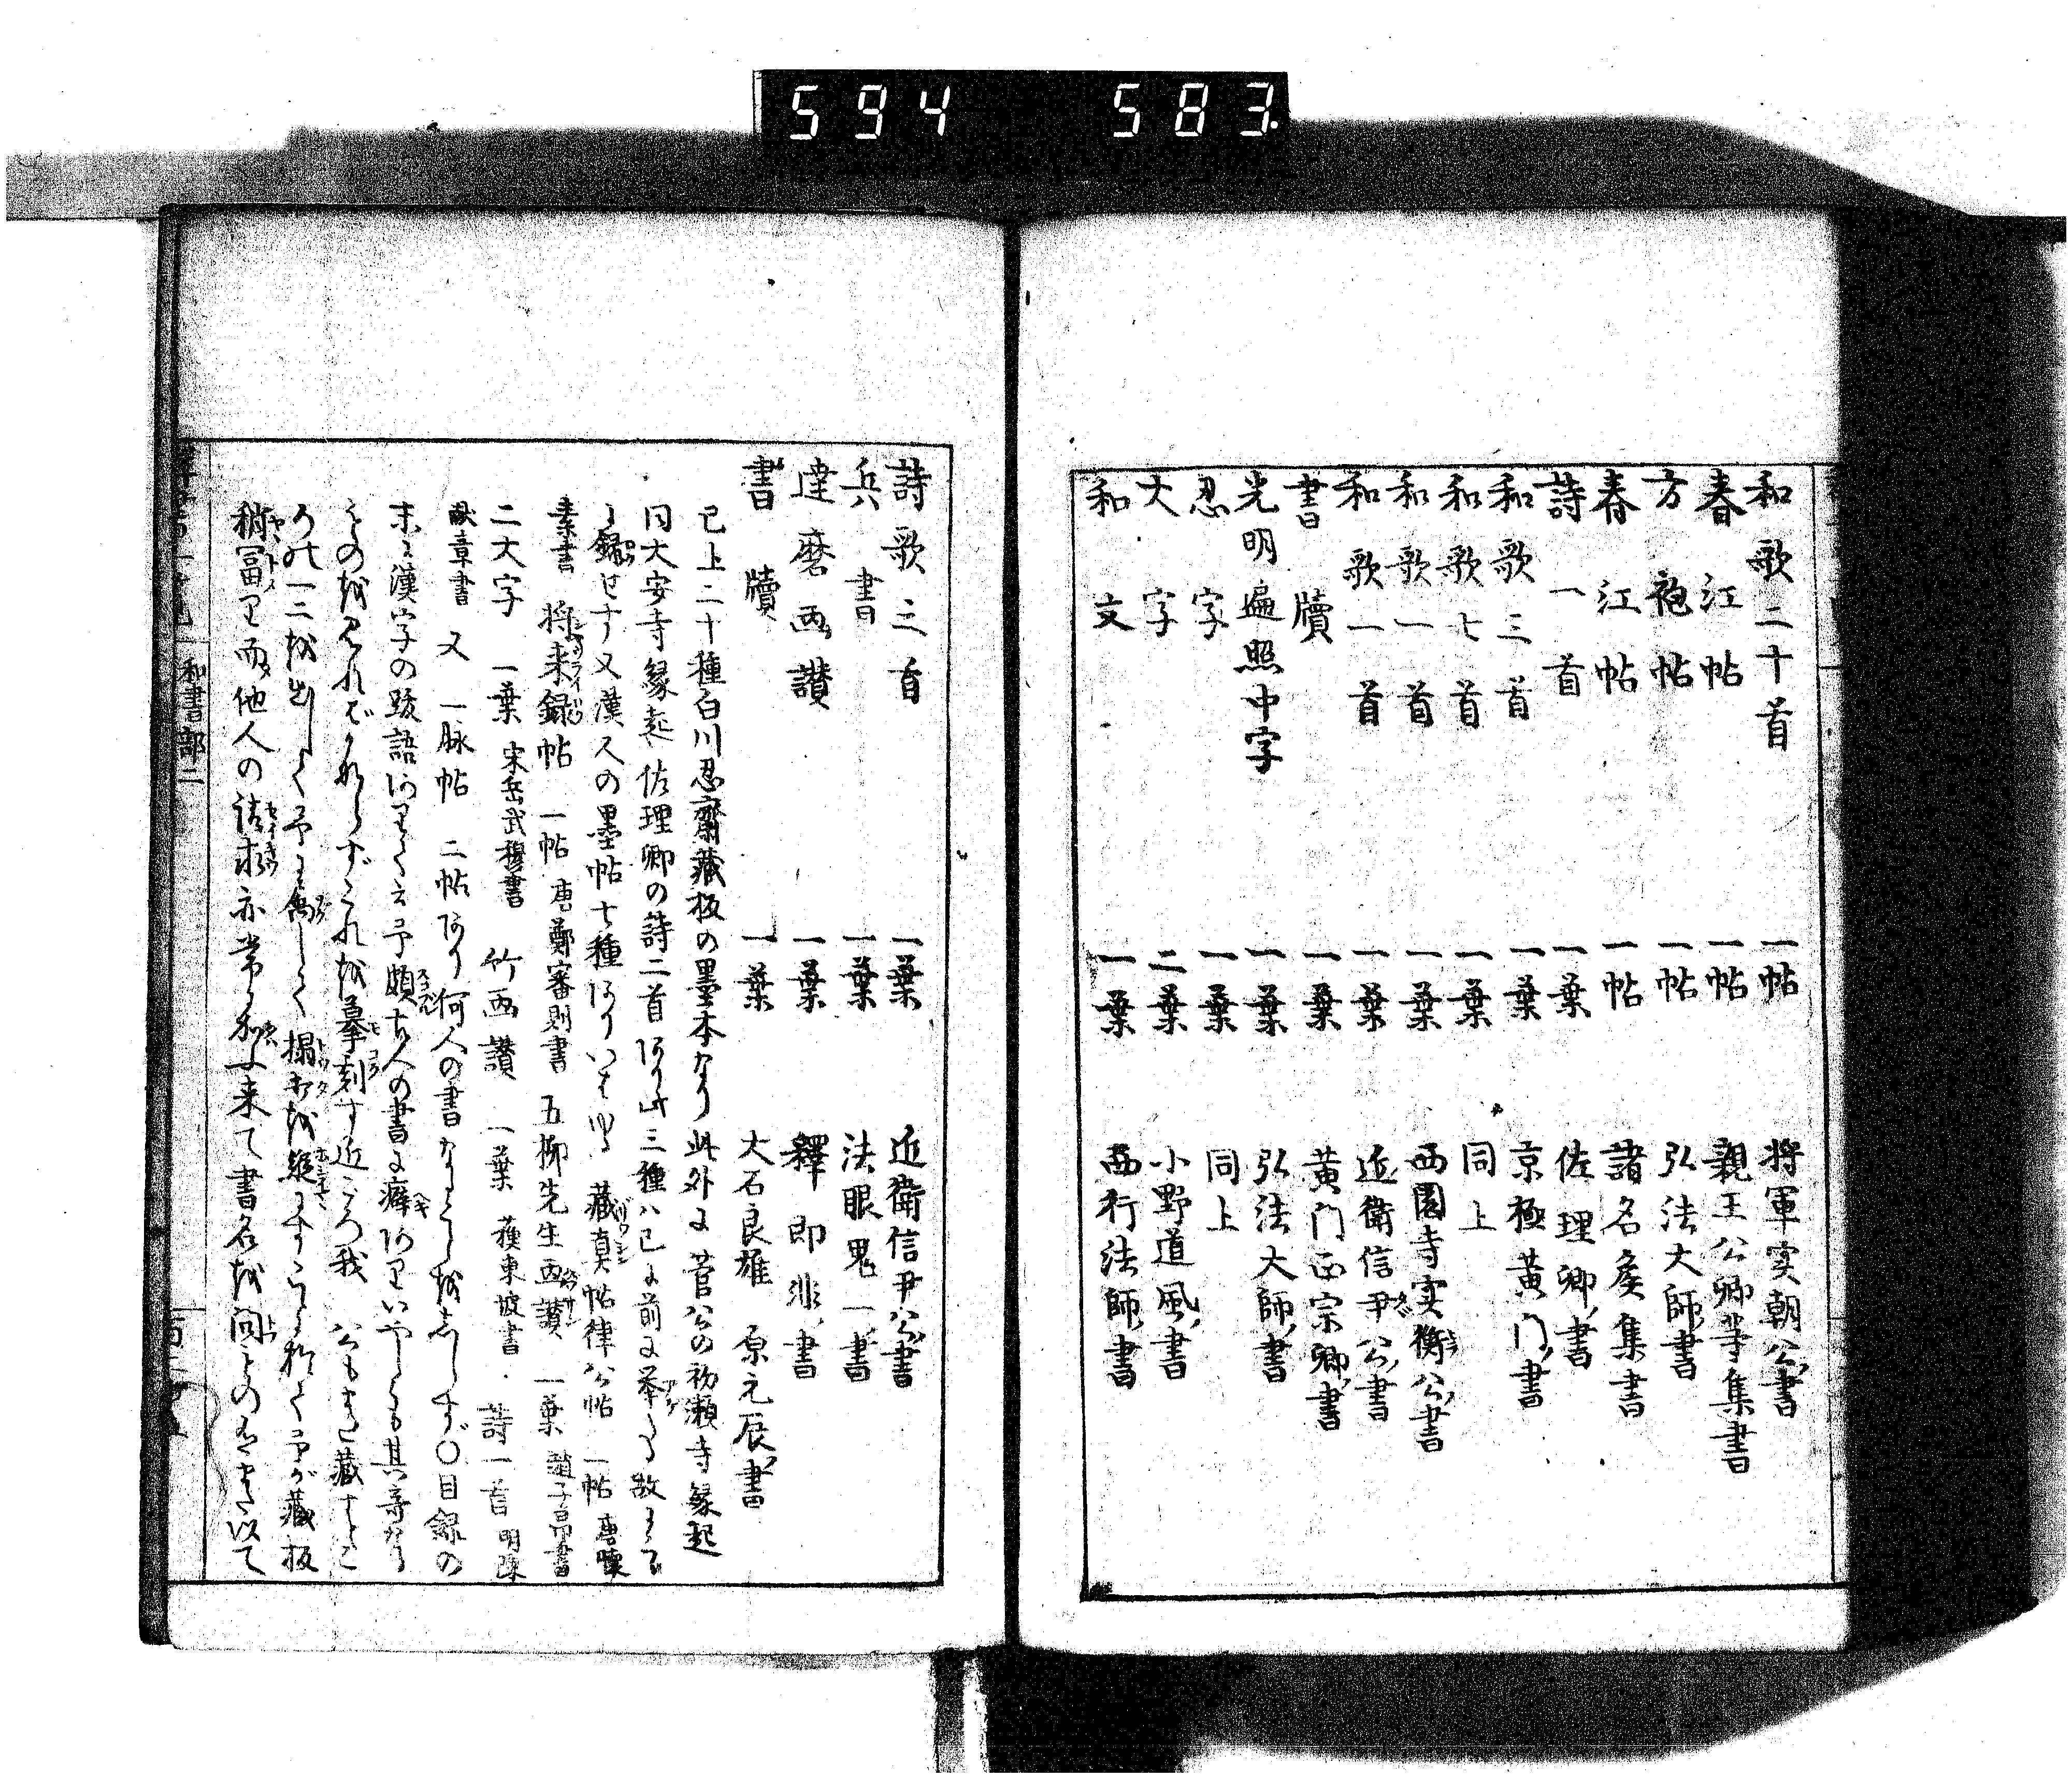 594 583
和歌二十首 一帖 将軍実朝公書
春江帖 一帖 親王公卿等集書
方袍帖 一帖 弘法大師書
春江帖 一帖 諸名矦集書
詩一首 一葉 佐理卿書
和歌三首 一葉 京極黄門書
和歌七首 一葉 同上
和歌一首 一葉 西園寺実衡公書
和歌一首 一葉 近衛信尹公書
書牘 一葉 黄門正宗卿書
光明遍照中字 一葉 弘法大師書
忍字 一葉 同上
大字 二葉 小野道風書
和文 一葉 西行法師書
詩歌三首 一葉 近衛信尹公書
兵書 一葉 法眼鬼一書
達磨画讃 一葉 釋即非書
書牘 一葉 大石良雄 原元辰書
已上二十種白川忍齋藏板の墨本なり此外に菅公の初瀬寺縁起
同大安寺縁起佐理卿の詩二首あり此三種ハ已に前に挙たる故こゝに
録せす又漢人の墨帖七種ありいはゆる 藏真帖律公帖 一帖 唐懐
素書 将来録帖 一帖 唐鄭審則書 五柳先生画讃 一葉 趙子昂書
二大字 一葉 宋岳武穆書 竹画讃 一葉 蘓東坡書 詩一首 明陳
献章書 又 一脉帖 二帖あり何人の書なることを志らず〇目録の
末に漢字の跋語ありていふ予頗古人の書に癖ありいやしくも其奇なる
ものを見ればからずこれを摹刻す近ころ我 公もまた藏するところ
の一二を出して予に
稍冨り而他人の請求亦常に来て書名を問ものあり是を以て
和書部二